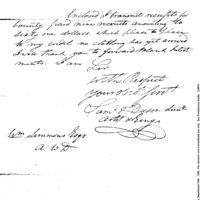 Enclosed I transmit receipts for
bounty paid nine recruits amounting to
sixty one dollars, which please to place
to my credit no clothing has yet arrived
I will thank you to forward blank Inlist-
ments. I am Sir
with Respect
your Obd Servt
Saml T. Dyson Lieut
Arts & Engs
Wm Simmons Esqr
A W D